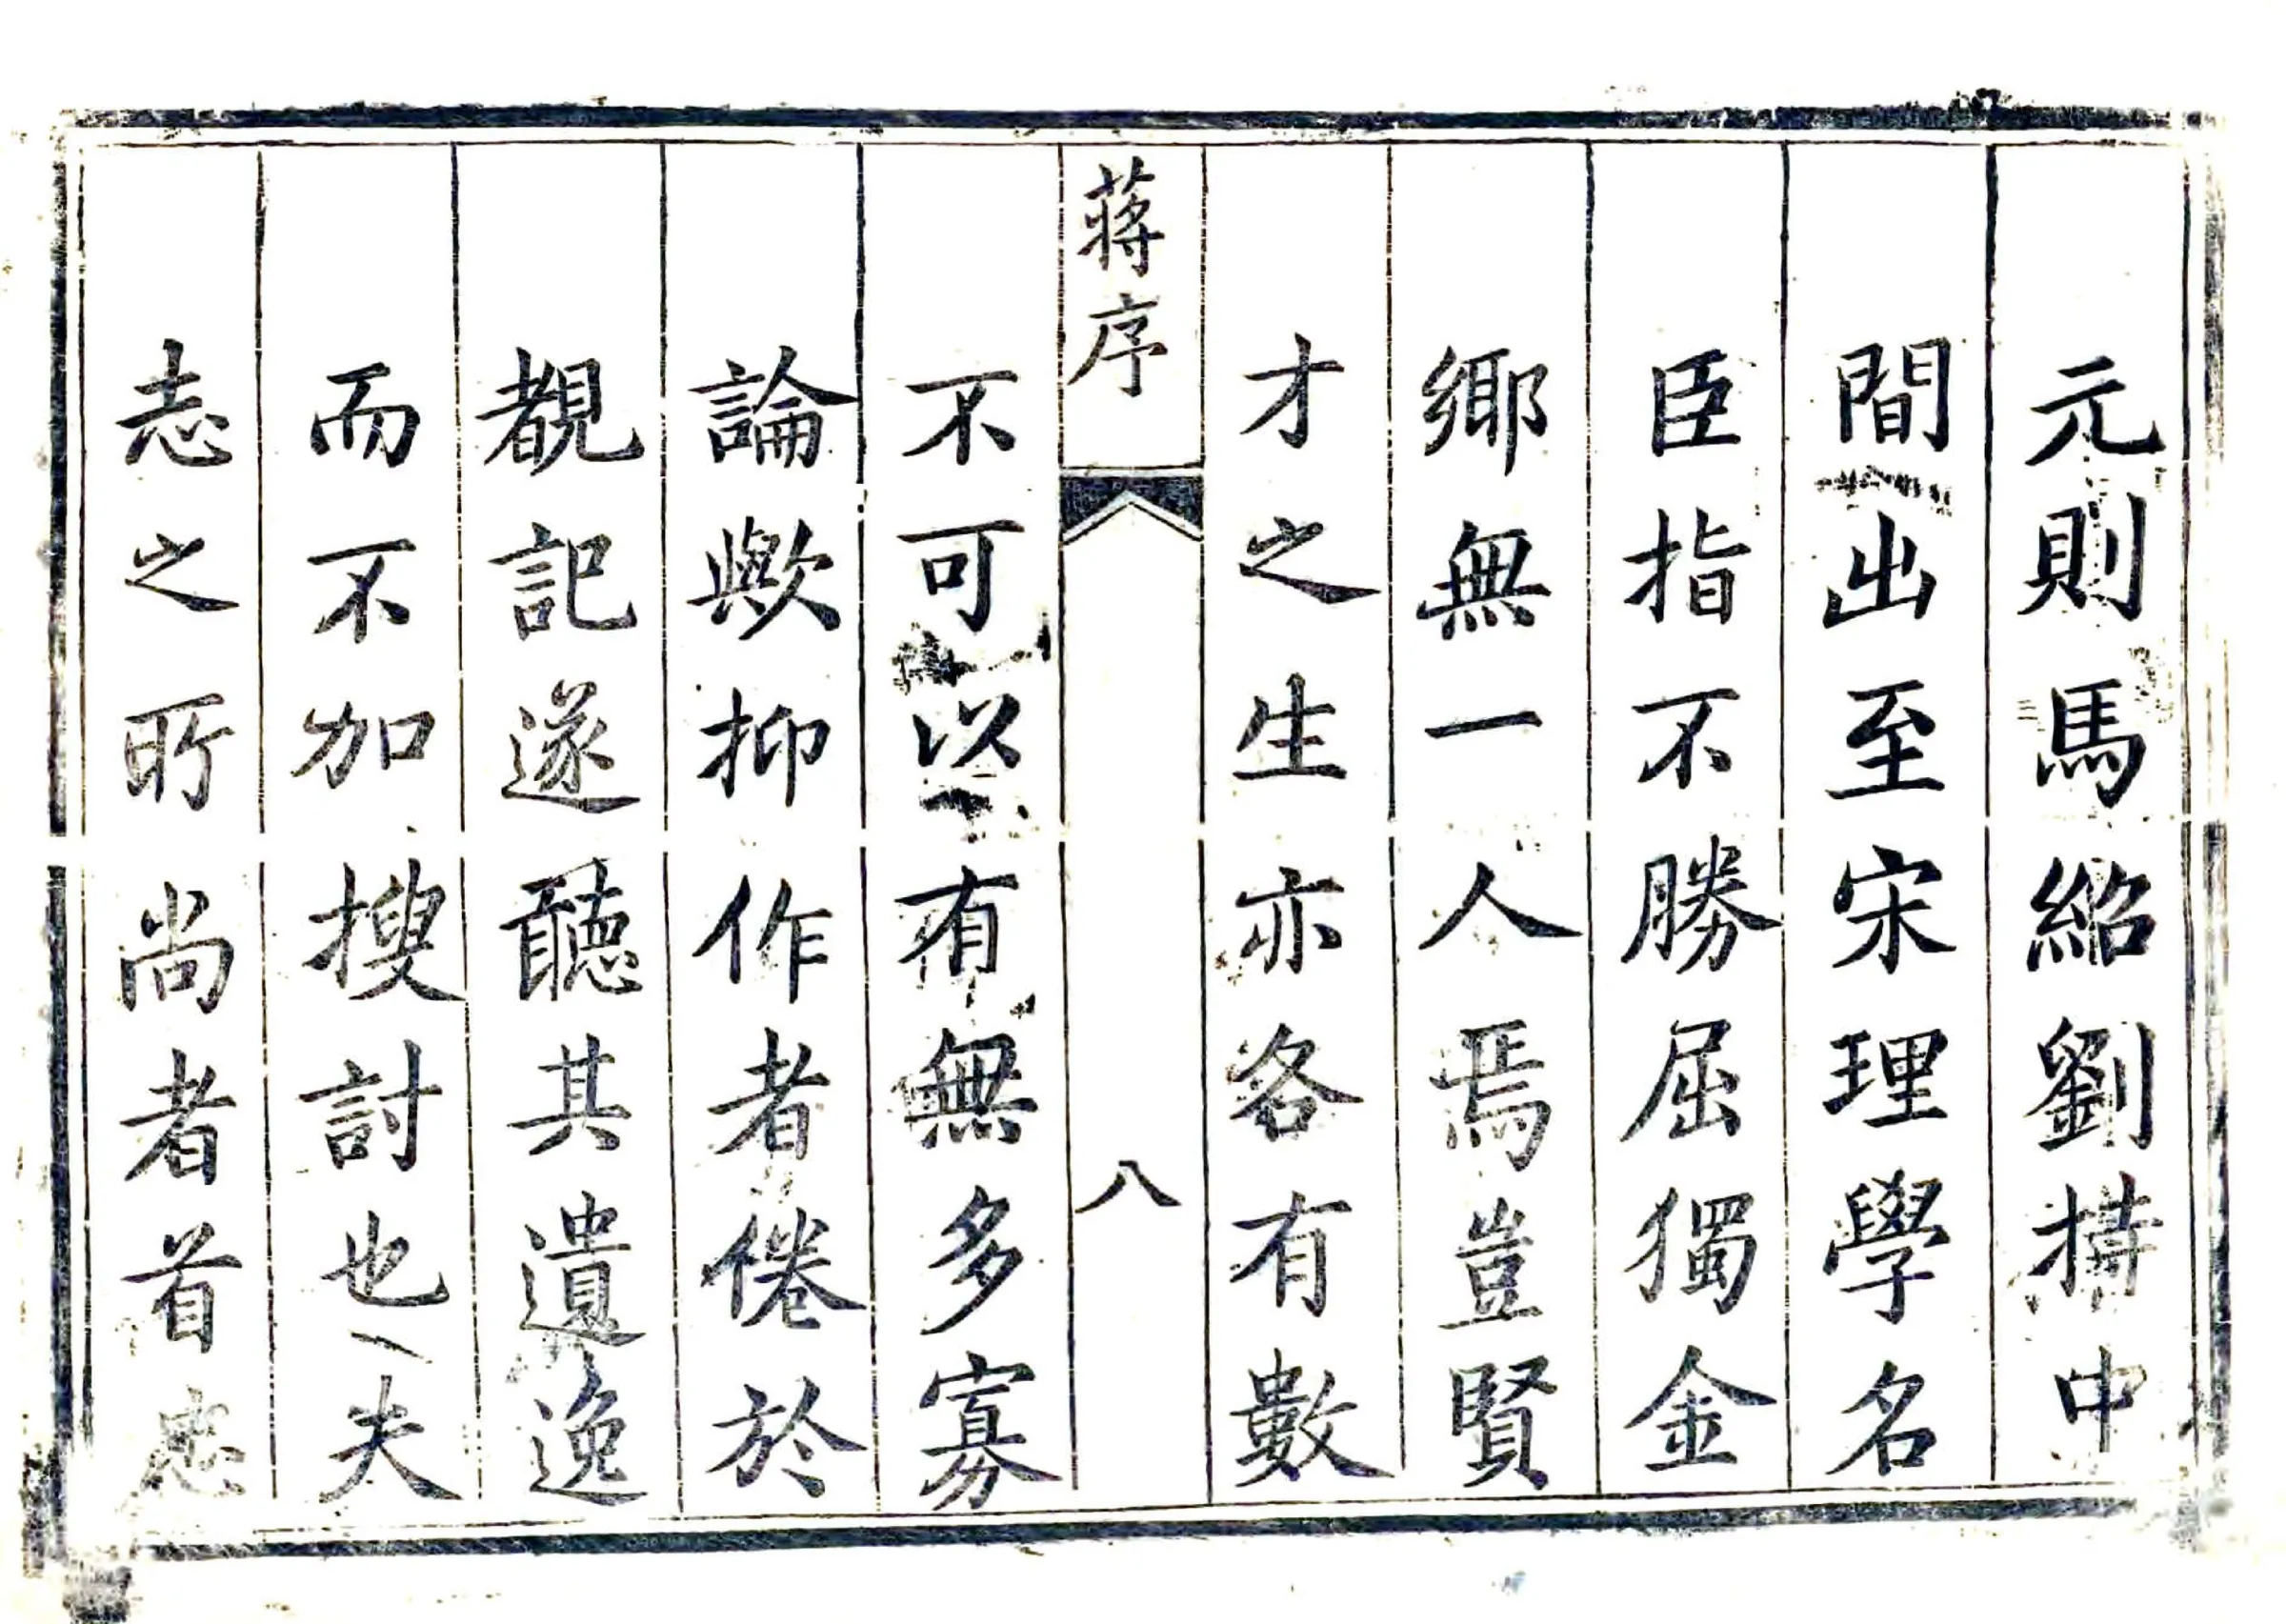 元則馬紹劉持中
間出至宋理學名
臣指不勝屈獨金
鄉無一人焉豈賢
才之生亦各有數
蔣序
八
不可以有無多寡
論歟抑作者倦於
覩記遂聽其遺逸
而不加搜討也夫
志之所尚者首忠